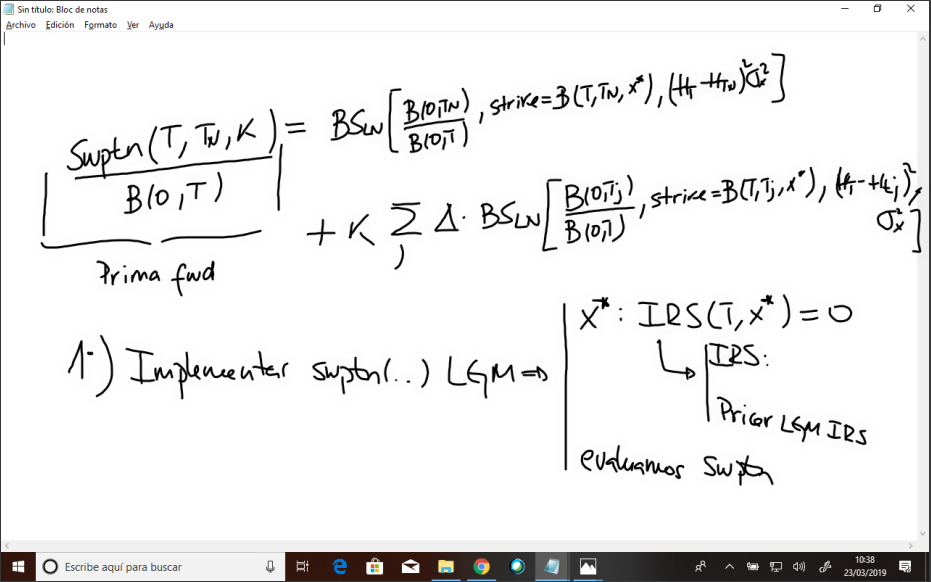 Sin título: Bloc de notas
Archivo Edición Formato Ver Ayuda
Swptn(T, TN, K) / B(0,T) = BSLN[B(0,TN)/B(0,T), strike=B(T,TN,x*), (HT-HTN)²σx²]
+ K Σj Δ· BSLN[B(0,Tj)/B(0,T), strike=B(T,Tj,x*), (HT-Htj)², σx²]
Prima fwd
1·) Implementar swptn(..) LGM ⇒
x* : IRS(T,x*) = 0
IRS:
Pricer LGM IRS
evaluamos swptn
Escribe aquí para buscar
10:38
23/03/2019